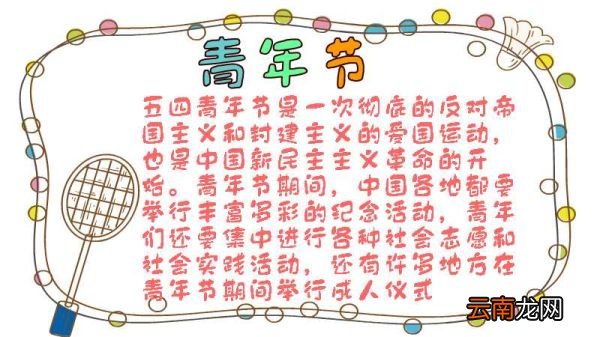 青年节
五四青年节是一次彻底的反对帝
国主义和封建主义的爱国运动，
也是中国新民主主义革命的开
始。青年节期间，中国各地都要
举行丰富多彩的纪念活动，青年
们还要集中进行各种社会志愿和
社会实践活动，还有许多地方在
青年节期间举行成人仪式
云南龙网